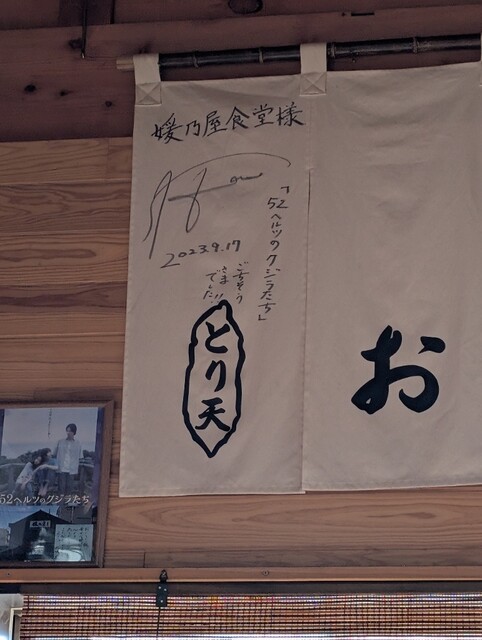 媛乃屋食堂様
「52ヘルツのクジラたち」
2023.9.17
ごちそう
さま
でした!!
とり天
お
52ヘルツのクジラたち